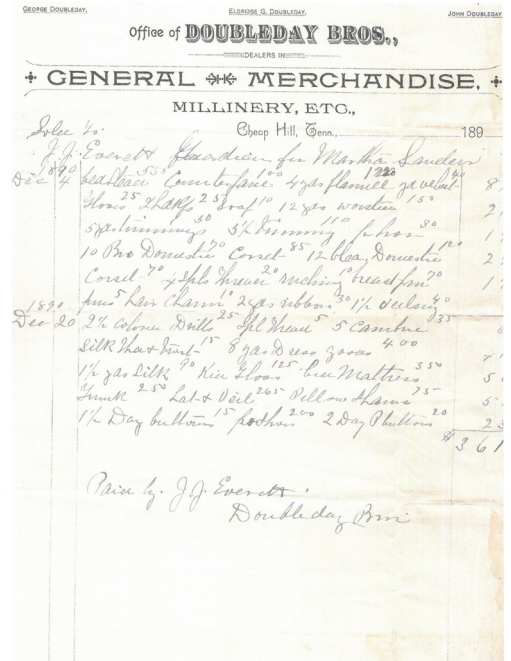 GEORGE DOUBLEDAY. ELDRIDGE G. DOUBLEDAY. JOHN DOUBLEDAY
Office of DOUBLEDAY BROS.,
DEALERS IN
GENERAL MERCHANDISE,
MILLINERY, ETC.,
Cheap Hill, Tenn., 189
Sold to
J. J. Everett Guardian for Martha Sanders
1890
Dec 4 bedstead 5 50 Counterpane 1 00 4 yds flannel 8
Gloves 25 25 Soap 10 12 yds worsted 1 50 2
5 yds trimming 50 5 1/2 trimming 1 10 pr hose 30 1
10 Bro Domestic 70 Corset 85 12 bleg Domestic 1 20 2
Corset 70 4 Spls thread 20 ruching 10 breast pin 70 1
pins 5 hair Charm 10 2 yds ribbon 30 1 1/2 veiling 40
1890
Dec 20 2 1/2 colored Drills 25 Spl thread 5 5 Cambric 35
Silk thread twist 15 8 yds Dress goods 4 00 4
1 1/2 yds Silk 90 Kid Gloves 1 25 bed Mattress 3 50 5
Trunk 2 50 hat & Veil 2 65 Pillow Shams 75 5
1 1/2 Doz buttons 15 pr shoes 2 00 2 Doz P buttons 20 2 3
$ 36 1
Paid by J. J. Everett
Doubleday Bros